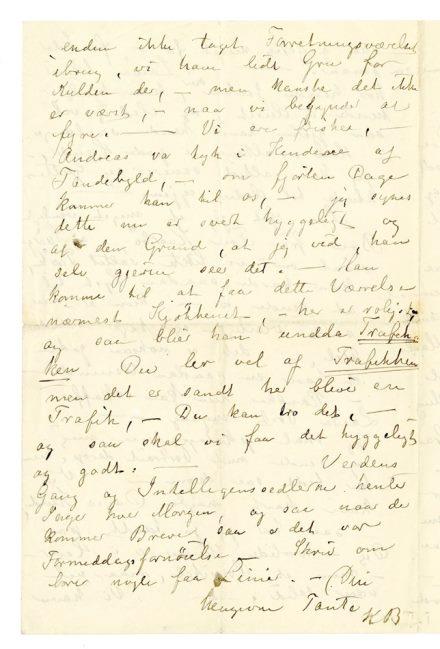 enden ikke taget Forretningsværelset
ibrug, vi have lidt Gru for
Kulden der, — men kanske det ikke
er værst, — naar vi begynder at
fyre. — Vi ere friske, —
Andreas var syk i Hendene af
Tandebyld, — om fjorten Dage
kommer han til os, — jeg synes
dette nu er svært hyggeligt og
af den Grund, at jeg ved, han
selv gjerne seer det. — Han
kommer til at faa dette Værelse
nærmest Kjøkkenet, — her er roligst,
og saa bliver han undda Trafik-
ken Du ler vel af Trafikken
men det er sandt her bliver en
Trafik, — Du kan tro det, —
og saa skal vi faa det hyggeligt
og godt. — Verdens
Gang og Intelligenssedlerne henter
Pige hver Morgen, og saa naar de
kommer Breve, saa er det vor
Formiddagsfornöielse — Skriv om
bare nogle faa Linier. — Din
hengivne Tante
KB